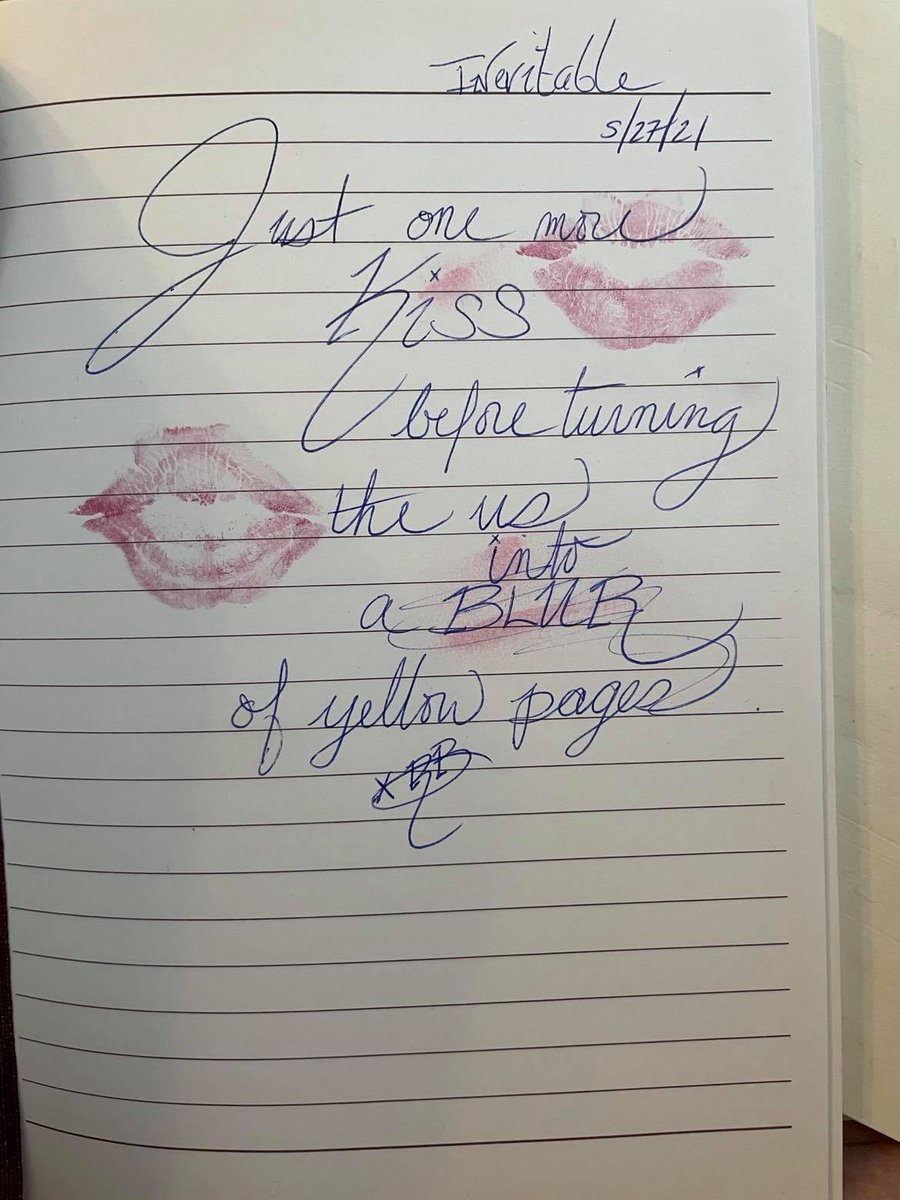 INevitable
5/27/21
Just one more
Kiss
before turning
the us
into
a BLUR
of yellow pages.
xBB